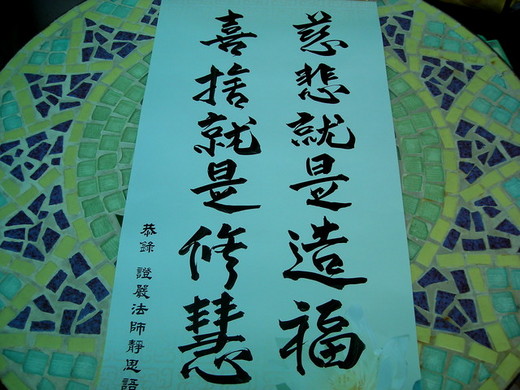 慈悲就是造福
喜捨就是修慧
恭錄 證嚴法師靜思語